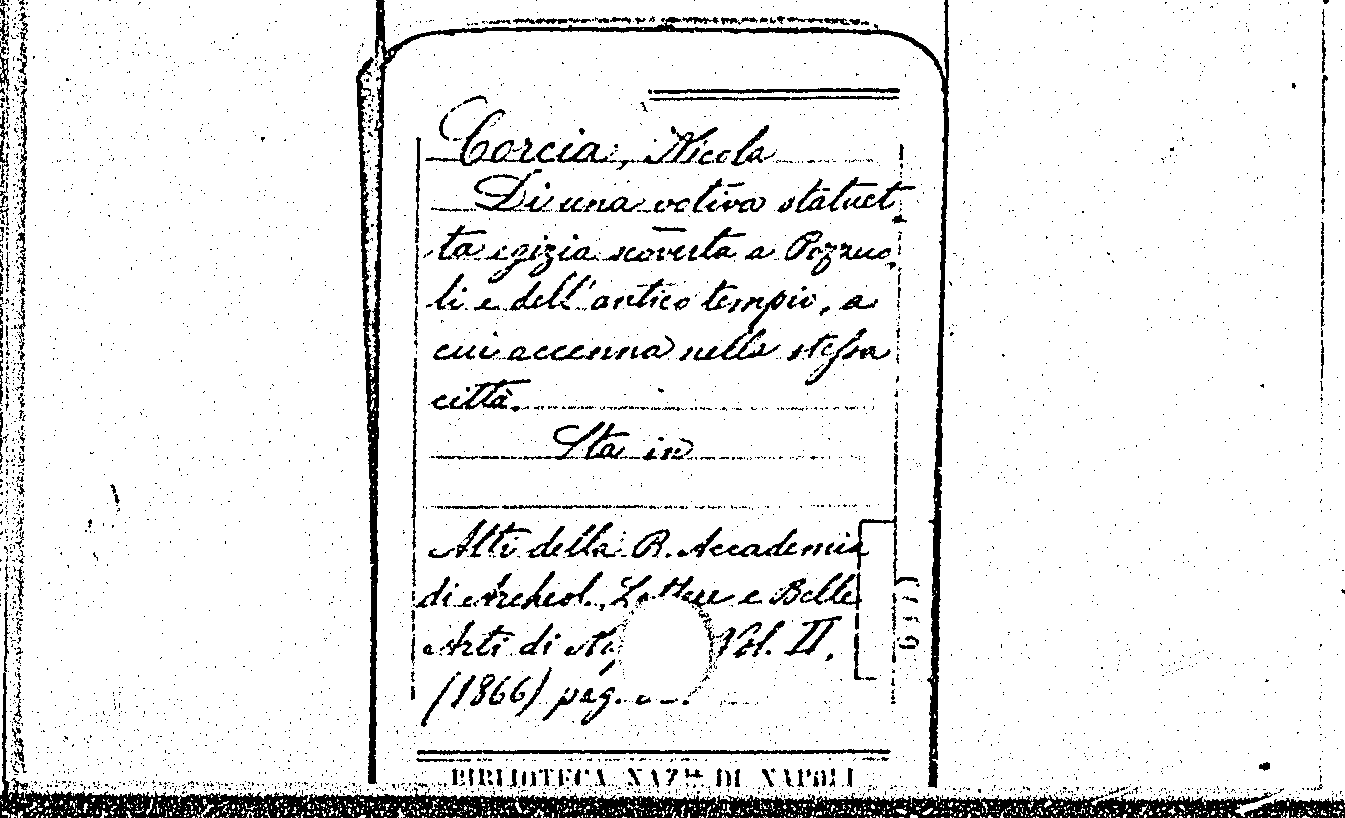 Corcia, Nicola
Di una votiva statuet-
ta egizia scoverta a Pozzuo-
li e dell'antico tempio, a
cui accenna nella stessa
città.
Sta in
Atti della R. Accademia
di Archeol., Lettere e Belle
Arti di Vol. II,
(1866) pag.
BIBLIOTECA NAZle DI NAPOLI